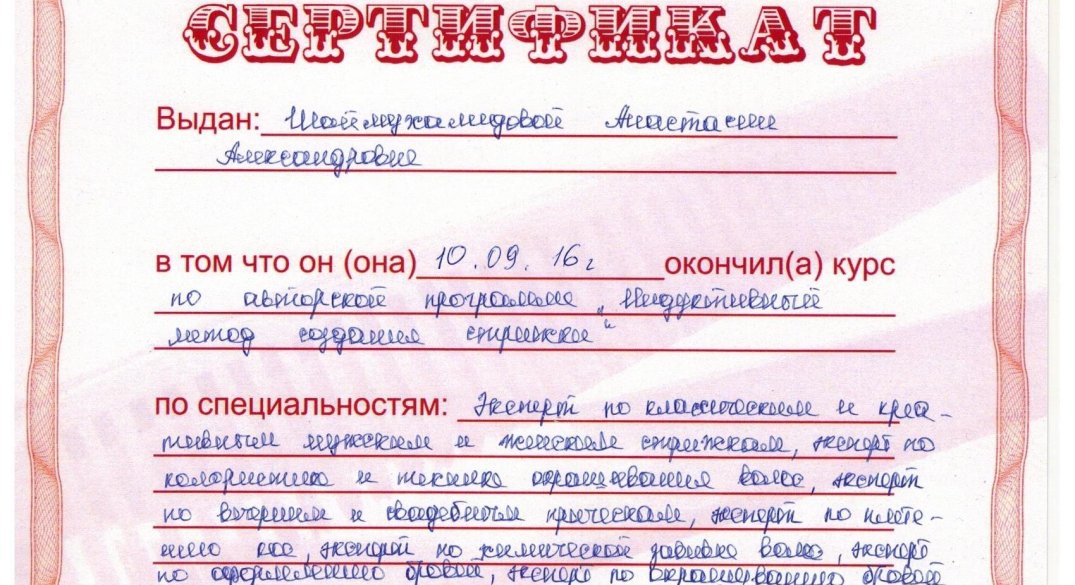 СЕРТИФИКАТ
Выдан: Шаймухамидовой Анастасии
Александровне
в том что он (она) 10.09.16г окончил(а) курс
по авторской программе „Индуктивный
метод создания стрижек“
по специальностям: Эксперт по классическим и креа-
тивным мужским и женским стрижкам, эксперт по
колористике и технике окрашивания волос, эксперт
по вечерним и свадебным прическам, эксперт по плете-
нию кос, эксперт по химической завивке волос, эксперт
по оформлению бровей, эксперт по окрашиванию бровей